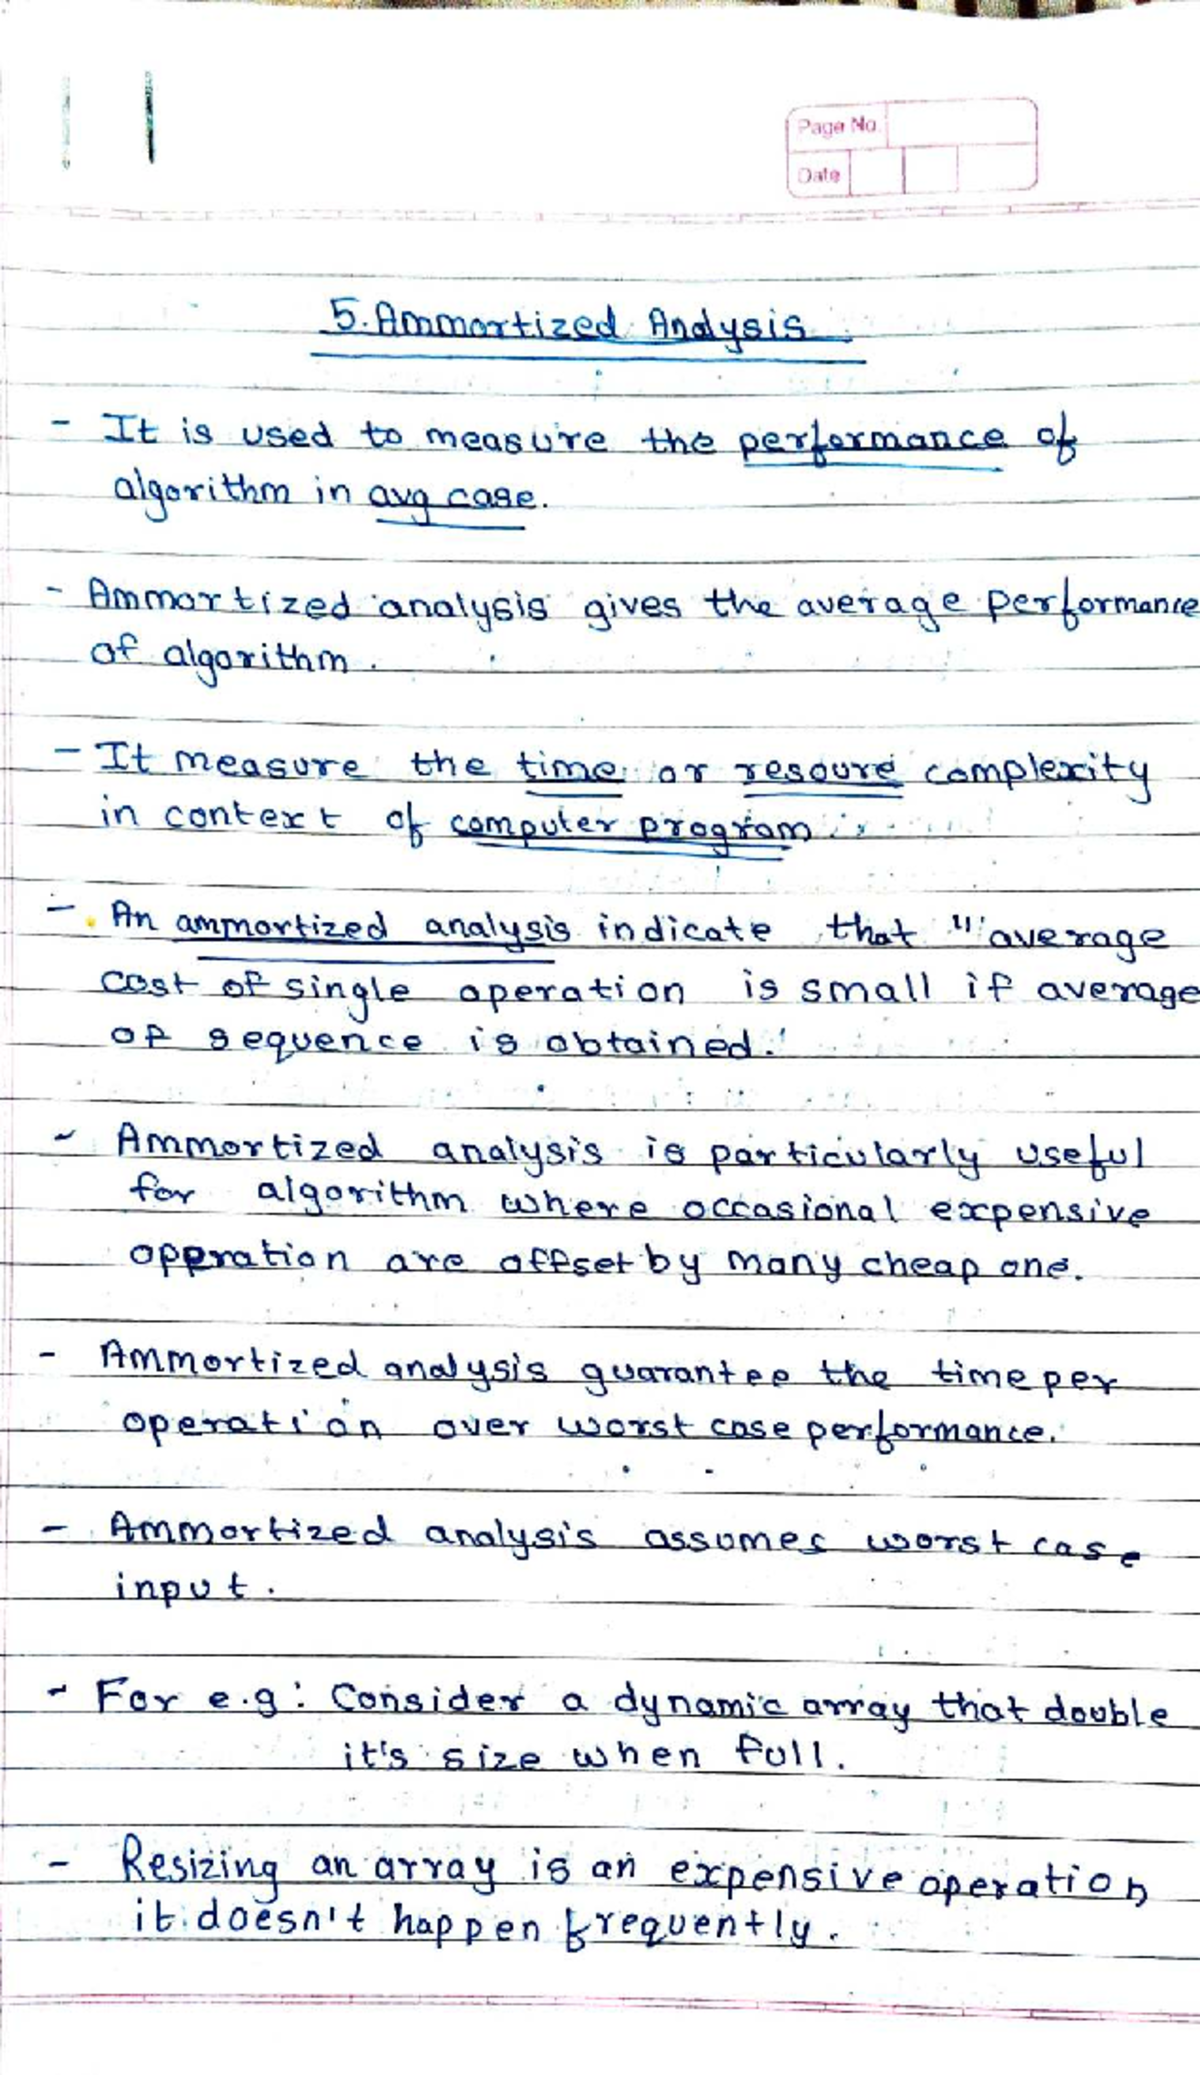 Page No.
Date
5. Ammortized Analysis
- It is used to measure the performance of
algorithm in avg case.
- Ammortized analysis gives the average performance
of algorithm.
- It measure the time or resoure complexity
in context of computer program
- An ammortized analysis indicate that "average
cost of single operation is small if average
of sequence is obtained."
- Ammortized analysis is particularly useful
for algorithm where occasional expensive
operation are offset by many cheap one.
- Ammortized analysis guarantee the time per
operation over worst case performance.
- Ammortized analysis assumes worst case
input.
- For e.g: Consider a dynamic array that double
it's size when full.
- Resizing an array is an expensive operation,
it doesn't happen frequently.